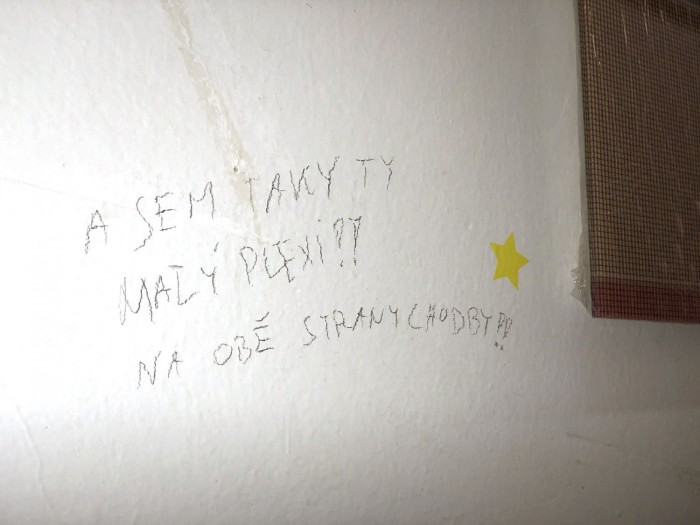 A SEM TAKY TY
MALÝ PLEXI!!
NA OBĚ STRANY CHODBY!!